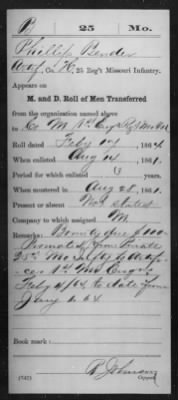 P | 25 | Mo.
Phillip Bender
Co. H, 25 Reg't Missouri Infantry.
Appears on
M. and D. Roll of Men Transferred
from the organization named above
to Co. M 1st
Roll dated Feby 17, 1864.
When enlisted Aug 14, 1861.
Period for which enlisted 3 years.
When mustered in Aug 28, 1861.
Present or absent Not stated
Company to which assigned M.
Remarks: Bounty due $100
Promoted from Private
25th Mo
Feby 4/64 to date from
Jany 6 64
Book mark:
(737)
R Johnson
Copyist.